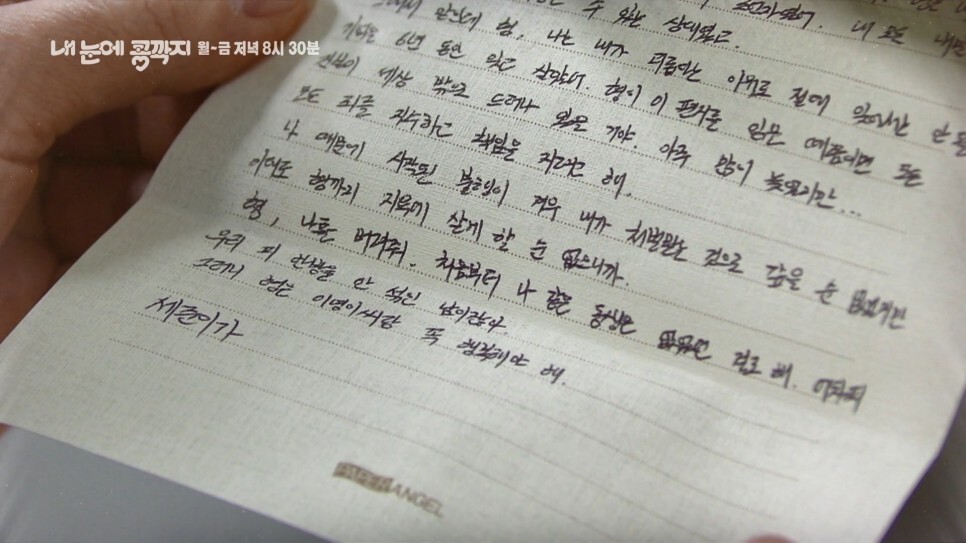 내 눈에 콩깍지 월~금 저녁 8시 30분
수 있는 상대였고.
형, 나는 내가 괴롭히는 이유로 절에 있으란
6년 동안 있고 살았어. 형이 이 편지를 읽을 때쯤이면 모든
세상 밖으로 드러나 있을 거야. 아주 많이 늦었지만...
모든 죄를 자수하고 책임을 지려고 해.
나 때문에 시작된 불행이 겨우 내가 처벌받는 것으로 갚을 순 없겠지만
형까지 지옥에 살게 할 순 없으니까.
형, 나를 버려줘. 처음부터 나 같은 동생은 없었던 걸로 해. 어차피
우리 피 한방울 안 섞인 남이잖아.
그러니 형은 이영이씨랑 꼭 행복해야 해.
세준이가
PAPER ANGEL